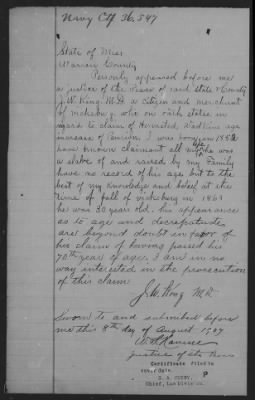 Navy Ctf 36,547
State of Miss
Warren County
Personly appeared before me
a justice of the Peace of said state & County
J.W. King M.D. a Citizen and merchant
of Vicksburg, who on oath states in
regard to claim of Watkins age
increase of Pension, I was born Jan 1855
have known claimant all my life he was
a slave of and raised by my Family
have no record of his age but to the
best of my knowledge and belief at the
time of fall of vicksburg in 1863
he was 30 years old. his appearance
as to age and decrepitude
are beyond doubt in favor of
his claim of having passed his
70th year of age. I am in no
way interested in the prosecution
of this claim
J.W. King M.D.
Sworn to and submited before
me this 8th day of August 1907
Justice of the Peace
Certificate filed in
Chief, Law Division.